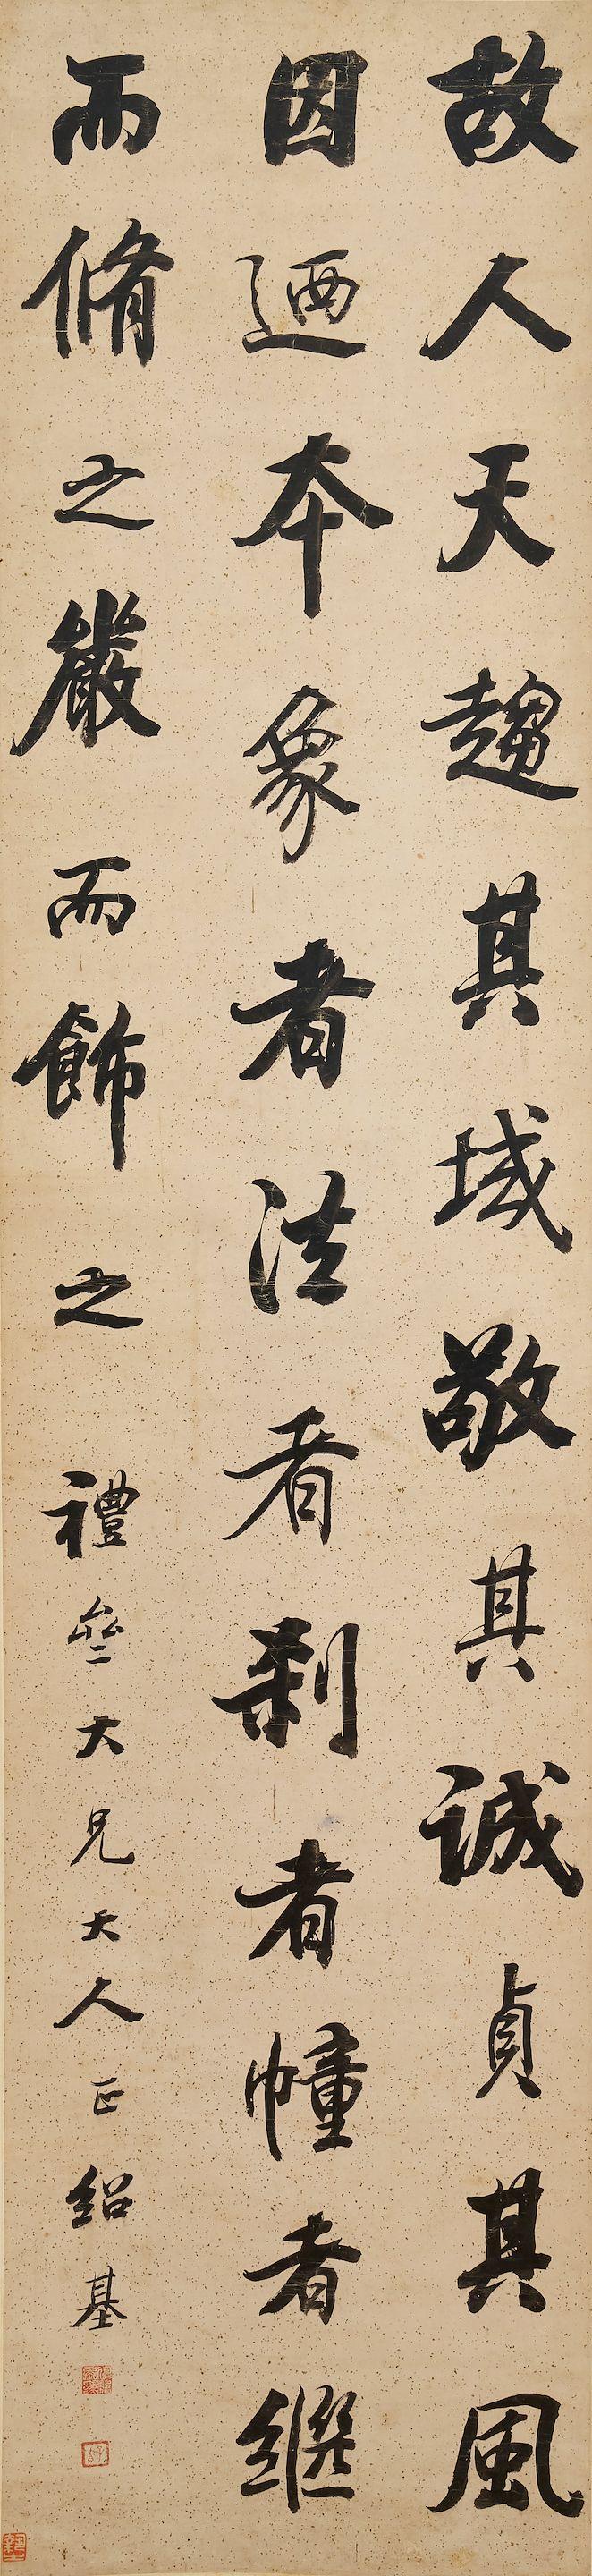 故人天趨其域敬其誠貞其風
因迺本象者法者刹者幢者繼
而脩之嚴而飾之 禮垒大兄大人正 紹基